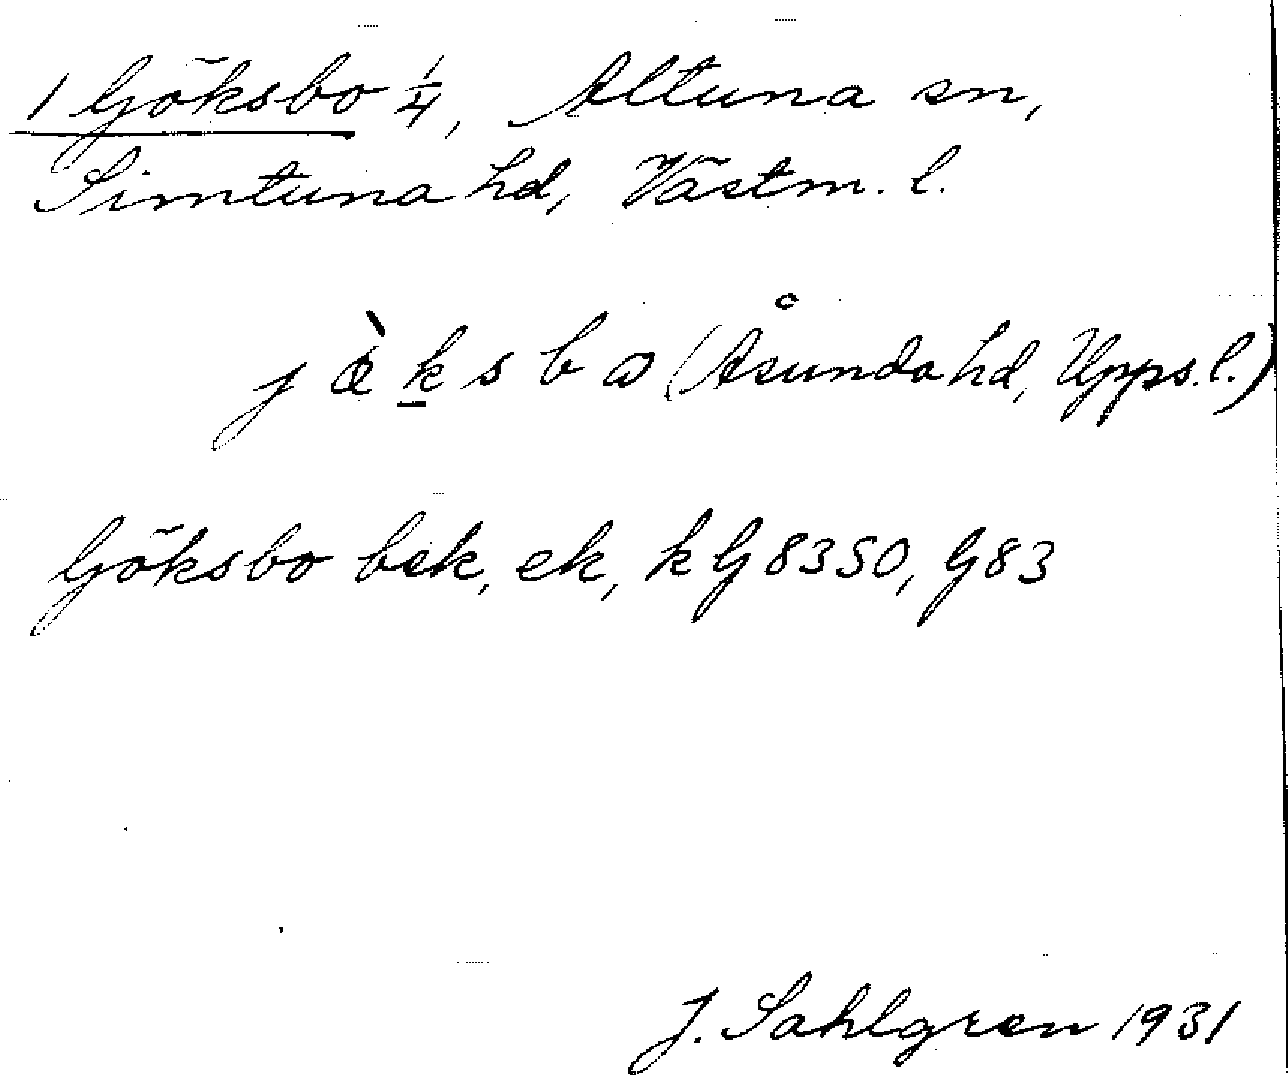 1 Göksbo 1/4, Altuna sn,
Simtuna hd, Västm. l.
j ö̀ k̲ s b ω (Åsunda hd, Upps. l.)
Göksbo bek, ek, k G 8350, G 83
J. Sahlgren 1931